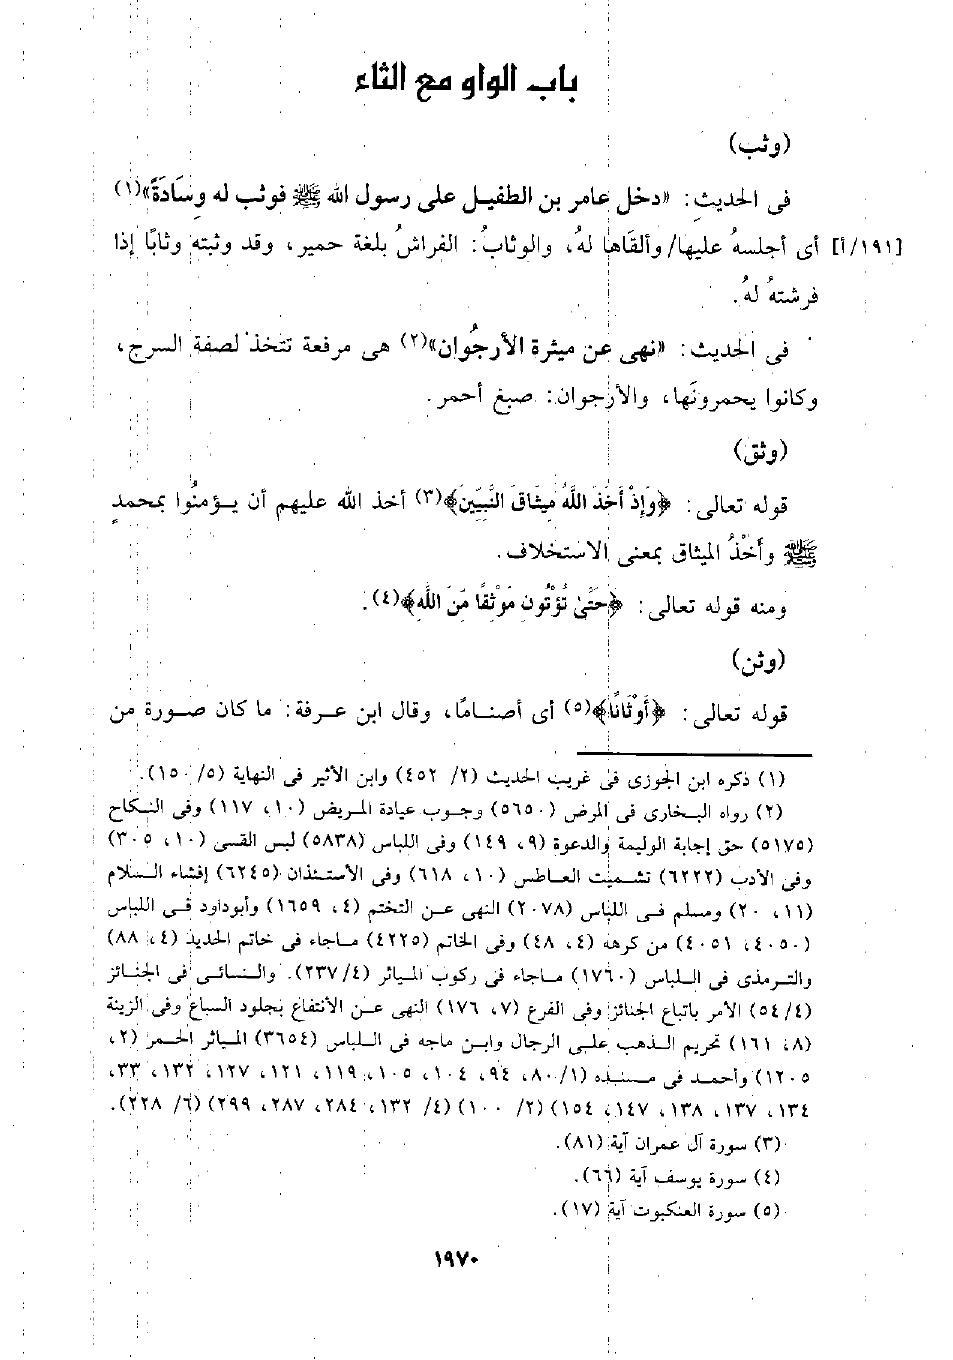 باب الواو مع الثاء
(وثب)
فى الحديث: «دخل عامر بن الطفيل على رسول الله ﷺ فوثب له وِسَادَةً»(١)
[١٩١/أ] أى أجلسهُ عليها/ وألقَاها لهُ، والوثابُ: الفراشُ بلغة حمير، وقد وثبته وثابًا إذا
فرشتهُ لهُ.
فى الحديث: «نهى عن ميثرة الأرجُوان»(٢) هى مرفعة تتخذ لصفة السرج،
وكانوا يحمرونَها، والأرجوان: صبغ أحمر.
(وثق)
قوله تعالى: ﴿وَإِذْ أَخَذَ اللَّهُ مِيثَاقَ النَّبِيِّينَ﴾(٣) أخذ الله عليهم أن يؤمنُوا بمحمدٍ
ﷺ وأَخْذُ الميثاق بمعنى الاستخلاف.
ومنه قوله تعالى: ﴿حَتَّىٰ تُؤْتُونِ مَوْثِقًا مِّنَ اللَّهِ﴾(٤).
(وثن)
قوله تعالى: ﴿أَوْثَانًا﴾(٥) أى أصنامًا، وقال ابن عرفة: ما كان صورة من
(١) ذكره ابن الجوزى فى غريب الحديث (٢/ ٤٥٢) وابن الأثير فى النهاية (٥/ ١٥٠).
(٢) رواه البخارى فى المرض (٥٦٥٠) وجوب عيادة المريض (١٠، ١١٧) وفى النكاح
(٥١٧٥) حق إجابة الوليمة والدعوة (٩، ١٤٩) وفى اللباس (٥٨٣٨) لبس القسى (١٠، ٣٠٥)
وفى الأدب (٦٢٢٢) تشميت العاطس (١٠، ٦١٨) وفى الأستئذان (٦٢٤٥) إفشاء السلام
(١١، ٢٠) ومسلم فى اللباس (٢٠٧٨) النهى عن التختم (٤، ١٦٥٩) وأبوداود فى اللباس
(٤٠٥٠، ٤٠٥١) من كرهه (٤، ٤٨) وفى الخاتم (٤٢٢٥) ماجاء فى خاتم الحديد (٤، ٨٨)
والترمذى فى اللباس (١٧٦٠) ماجاء فى ركوب المياثر (٤/ ٢٣٧). والنسائى فى الجنائز
(٤/ ٥٤) الأمر باتباع الجنائز وفى الفرع (٧، ١٧٦) النهى عن الأنتفاع بجلود السباع وفى الزينة
(٨، ١٦١) تحريم الذهب على الرجال وابن ماجه فى اللباس (٣٦٥٤) المياثر الحمر (٢،
١٢٠٥) وأحمد فى مسنده (١/ ٨٠، ٩٤، ١٠٤، ١٠٥، ١١٩، ١٢١، ١٢٧، ١٣٢، ٣٣،
١٣٤، ١٣٧، ١٣٨، ١٤٧، ١٥٤) (٢/ ١٠٠) (٤/ ١٣٢، ٢٨٤، ٢٨٧، ٢٩٩) (٦/ ٢٢٨).
(٣) سورة آل عمران آية (٨١).
(٤) سورة يوسف آية (٦٦).
(٥) سورة العنكبوت آية (١٧).
١٩٧٠